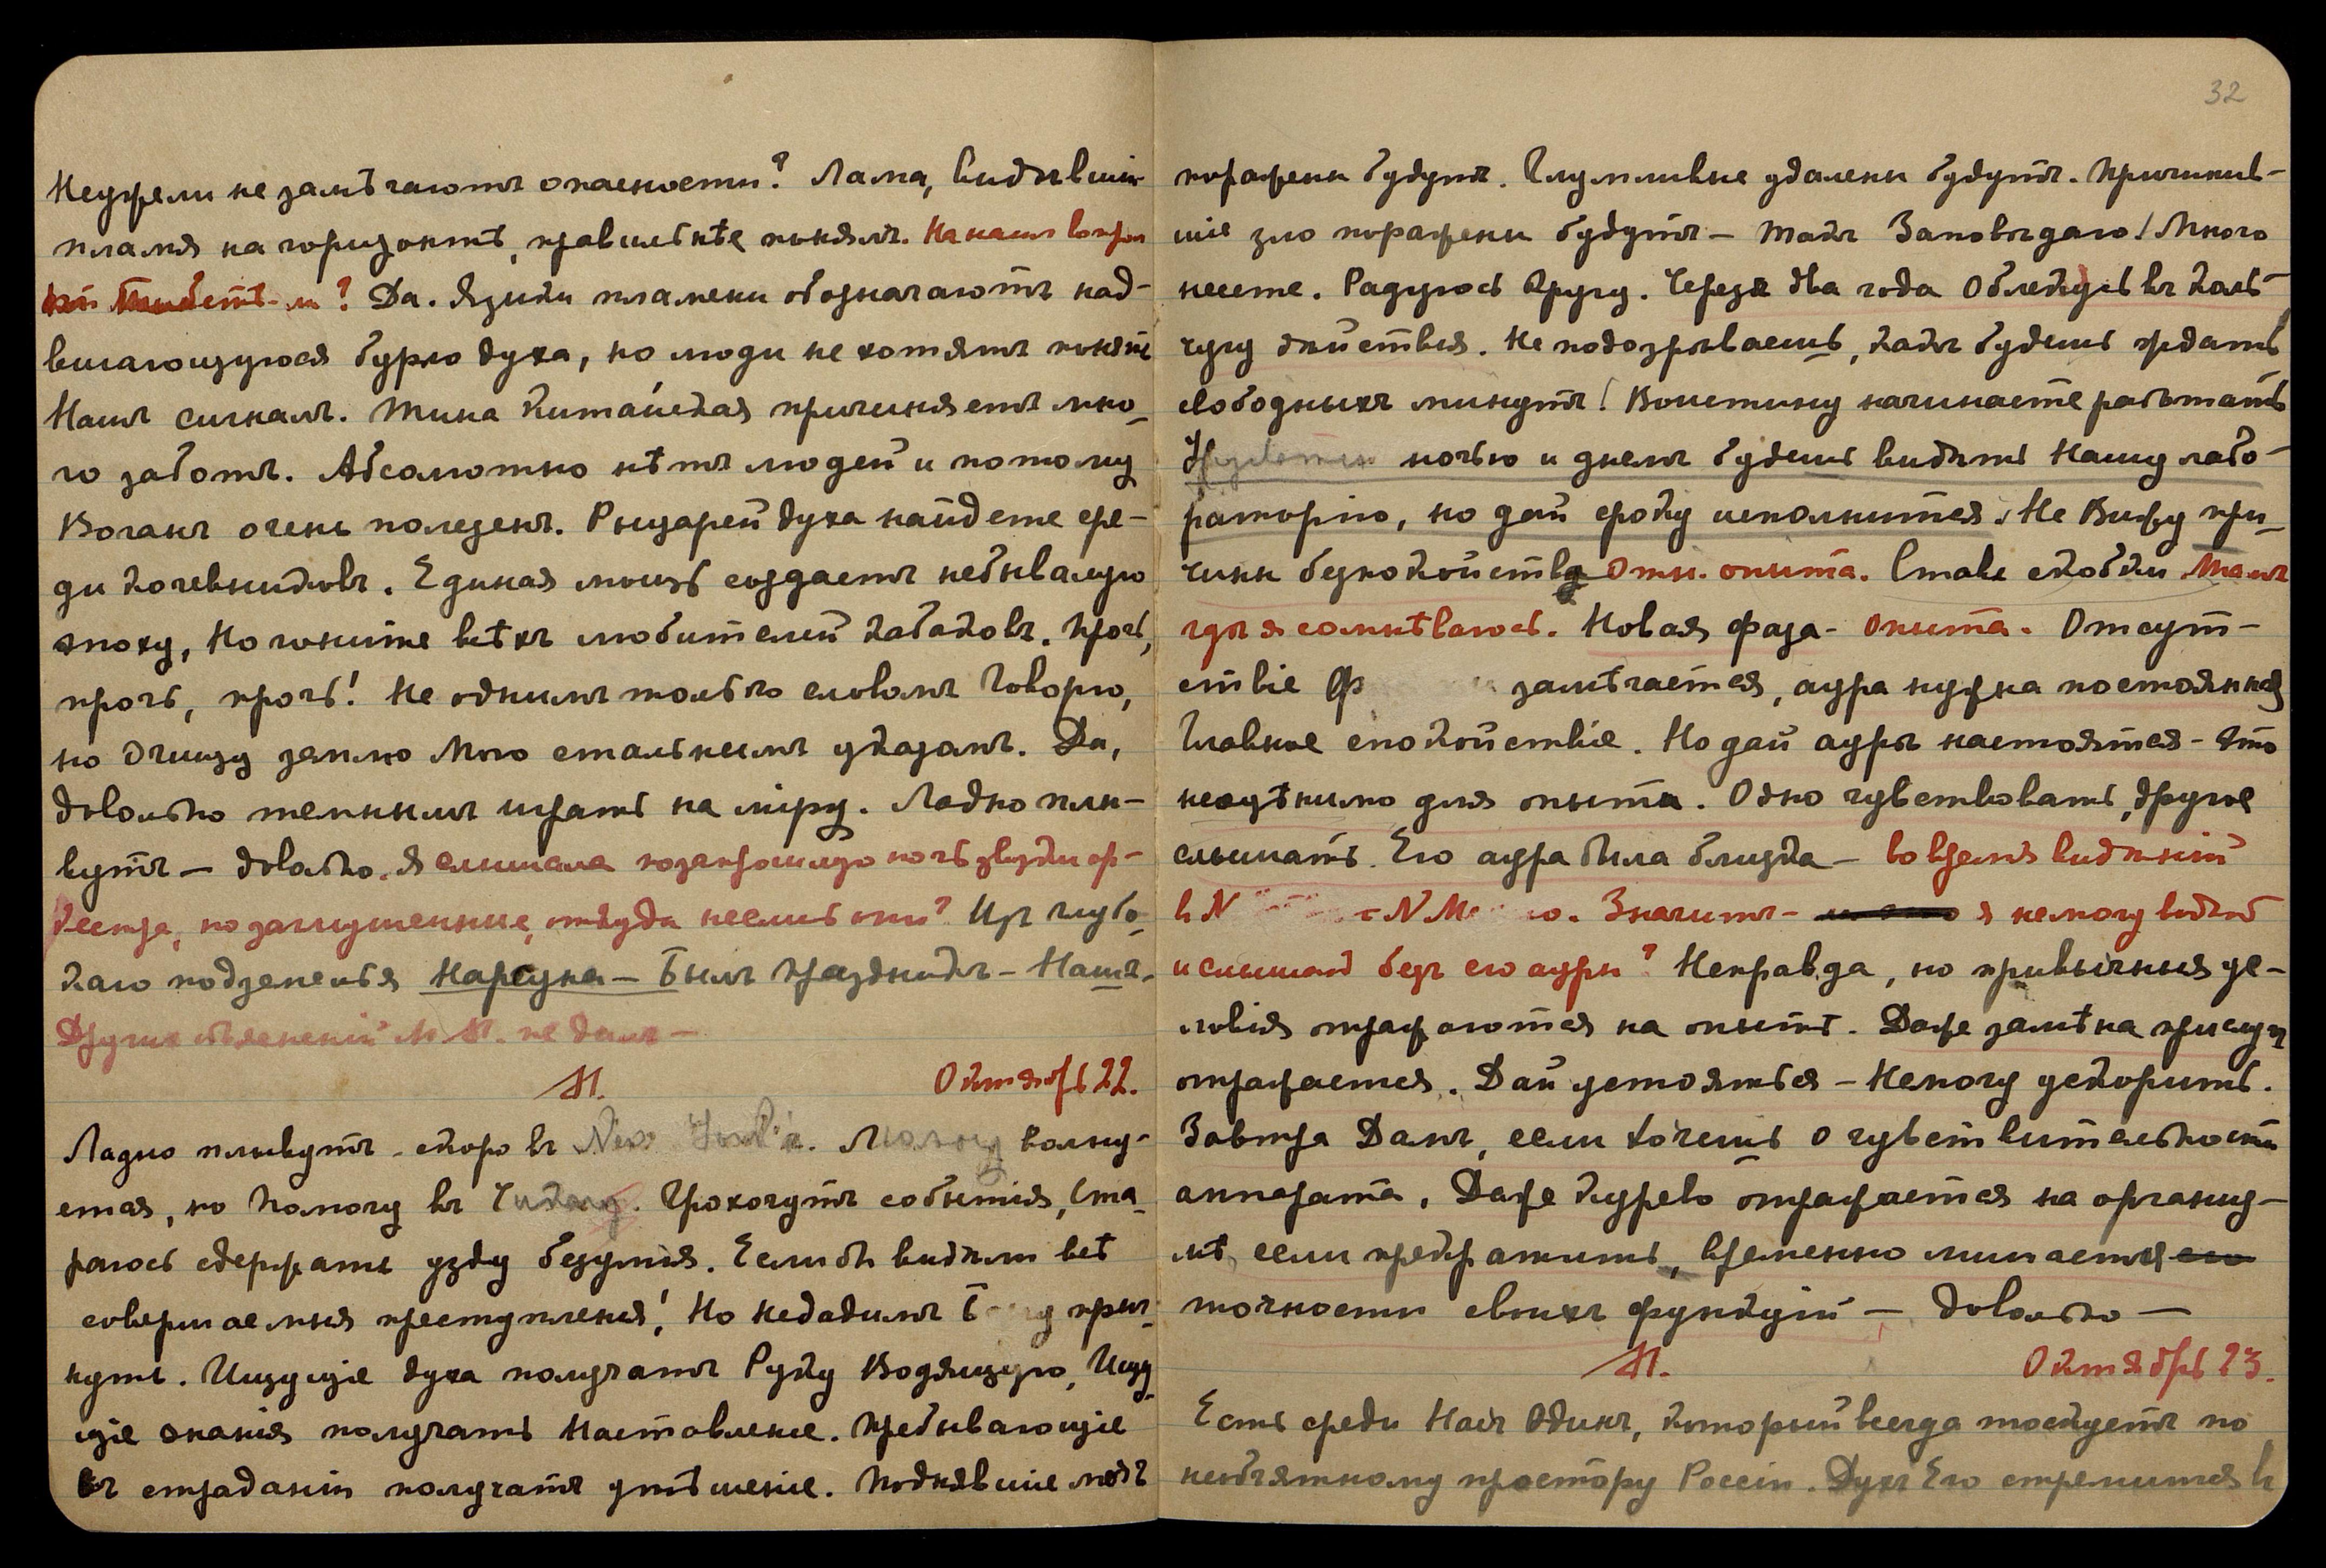 Неужели не замѣчаютъ опасности? Лама, видѣвшiй
пламя на горизонтѣ, правильнѣе понялъ. На нашъ вопрос
Да. Языки пламени обозначаютъ над-
вигающуюся бурю духа, но люди не хотятъ понять
Нашъ сигналъ. Тина Китайская причиняетъ мно-
го заботъ. Абсолютно нѣтъ людей и потому
Воганъ очень полезенъ. Рыцарей духа найдете сре-
ди кочевниковъ. Единая мощь создаетъ небывалую
эпоху, Но гоните всѣхъ любителей кабаковъ. Прочь,
прочь, прочь! Не однимъ только словомъ Говорю,
но Очищу землю Мою стальнымъ указомъ. Да,
довольно темнымъ играть на мiру. Ладно плы-
вутъ — довольно. Я слышала позапрошлую ночь звуки ор-
кестра, но заглушенные, откуда неслись они? Изъ глубо-
каго подземелья Нарсуна — Былъ праздникъ — Нашъ.
Других объясненiй М. М. не далъ —
М. Октябрь 22.
Ладно плывутъ. скоро въ New York'ѣ. волну-
ется, но Помогу въ Чикаго. Грохочутъ событiя, Ста-
раюсь сдержать узду безумiя. Если бы видѣли всѣ
совершаемыя преступленiя! Но не дадимъ пры-
нуть. Ищущiе духа получатъ Руку Водящую, Ищу-
щiе знанiя получатъ Наставленiе. Пребывающiе
въ страданiи получатъ утѣшенiе. Поднявшiе мечъ
32
поражены будутъ. Глумливые удалены будутъ. Причинив-
шiе зло поражены будутъ — такъ Заповѣдаю! Много
несете. Радуюсь Другу. Через два года Облекусь въ коль-
чугу дѣйствiя. Не подозрѣваешь, какъ будешь ждать
свободныхъ минутъ! Воистину начинаете работать
ночью и днемъ будешь видѣть Нашу лабо-
раторiю, но дай сроку исполнится. Не Вижу при-
чины безпокойства Отн. опыта. Ставь скобки Тамъ
гдѣ я сомнѣваюсь. Новая фаза - Опыта. Отсут-
ствiе Ф замѣчается, аура нужна постоянная
Главное спокойствiе. Но дай аурѣ настоятся - это
неоцѣнимо для опыта. Одно чувствовать, другое
слышать. Его аура была близка — во время видѣнiй
в N Значитъ - я не могу видѣть
и слышать безъ его ауры? Неправда, но привычныя ус-
ловiя отражаются на опытѣ. Даже замѣна прислуги
отражается. Дай устояться — Не могу ускорить.
Завтра Дамъ, если хочешь о чувствительности
аппарата. Даже курево отражается на организ-
мѣ, если прекратить, временно лишается его
точности своихъ функцiй — довольно —
М. Октябрь 23.
Есть среди Насъ Одинъ, который всегда тоскуетъ по
необъятному простору Россiи. Духъ Его стремится въ